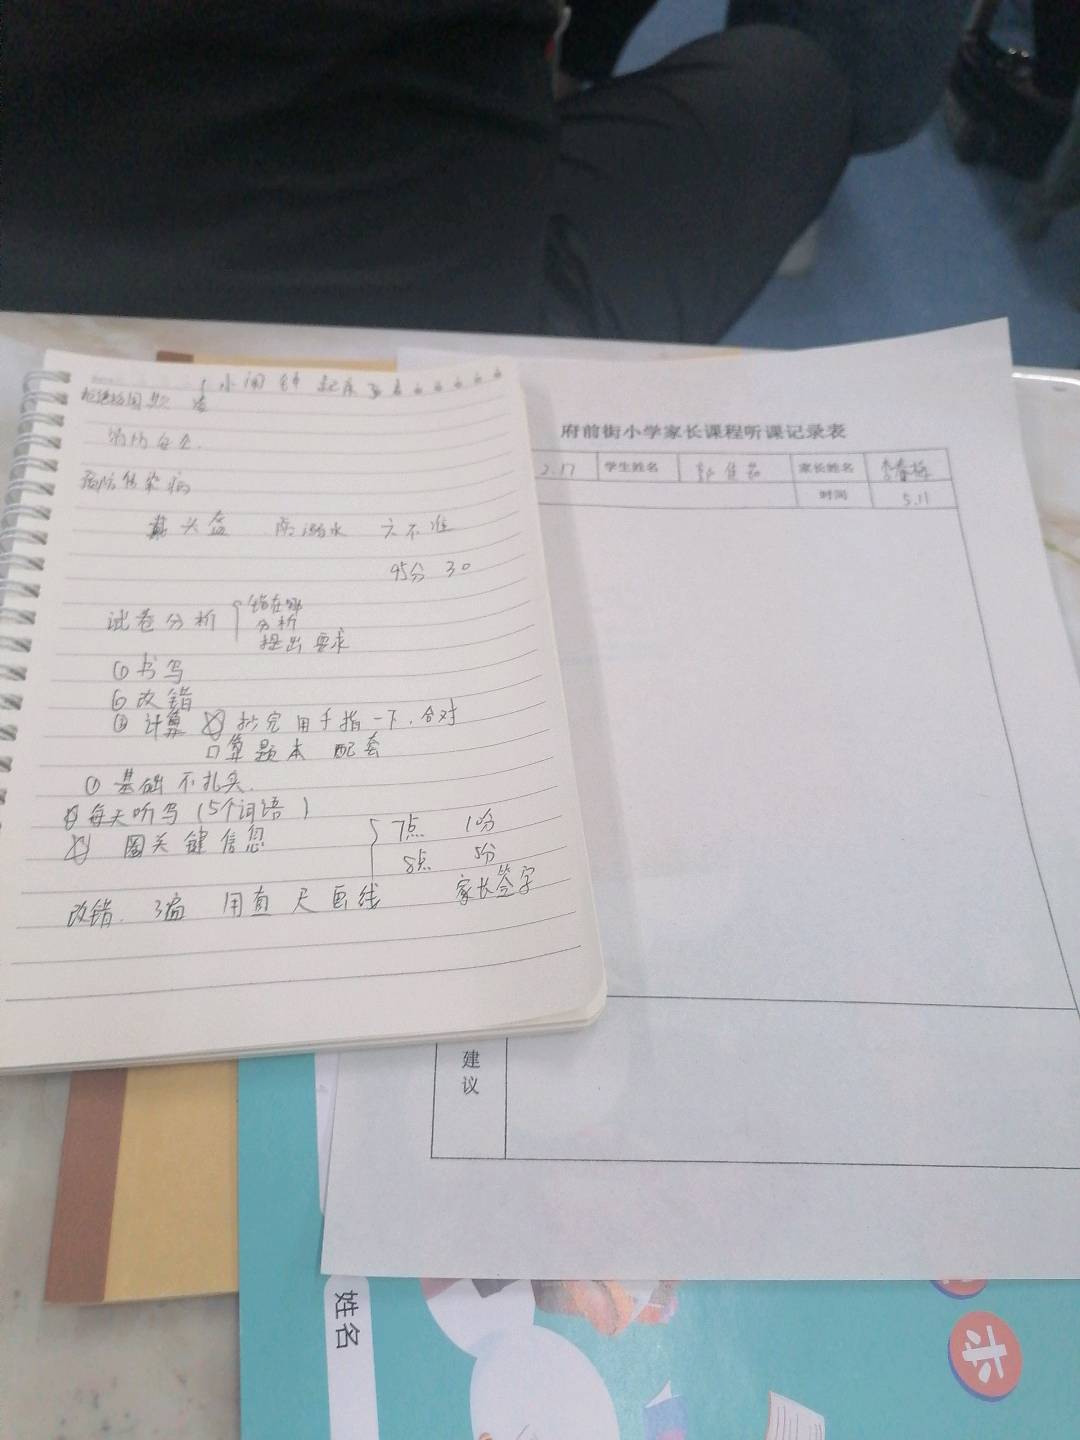 小闹钟 起床
消防安全.
预防传染病
戴头盔 防溺水 六不准
45分 30
试卷分析 错在哪
分析
提出要求
①书写
②改错
③计算 抄完用手指一下.合对
口算题本 配套
① 基础不扎实.
每天听写(5个词语)
圈关键信息
7点 10分
8点 5分
改错. 3遍 用直尺画线 家长签字
府前街小学家长课程听课记录表
2.17 学生姓名 家长姓名 李春梅
时间 5.11
建
议
姓名